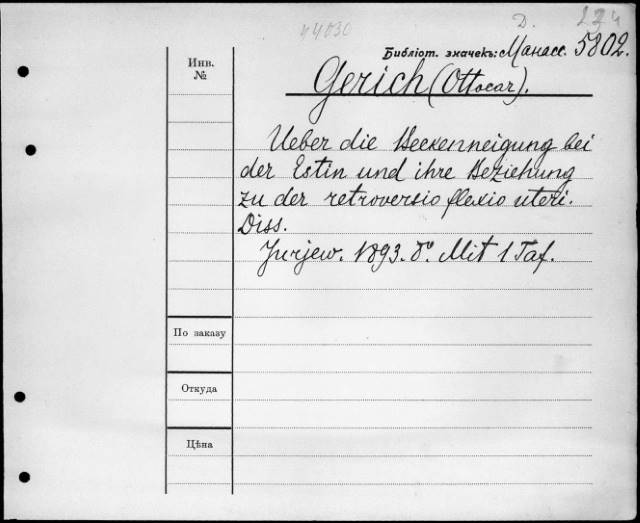 44030
Д. 224
Библіот. значекъ: Манасс. 5802.
Инв. №
Gerich (Ottocar).
Ueber die Beckenneigung bei
der Estin und ihre Beziehung
zu der retroversio flexio uteri.
Diss.
Jurjew. 1893. 8º. Mit 1 Taf.
По заказу
Откуда
Цѣна